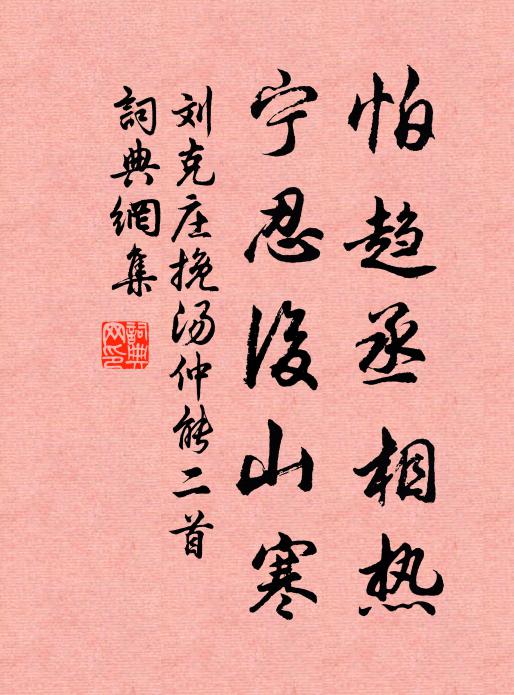 怕趋丞相热
宁忍後山寒
刘克庄挽汤仲能二首
词典網集
詞典网印